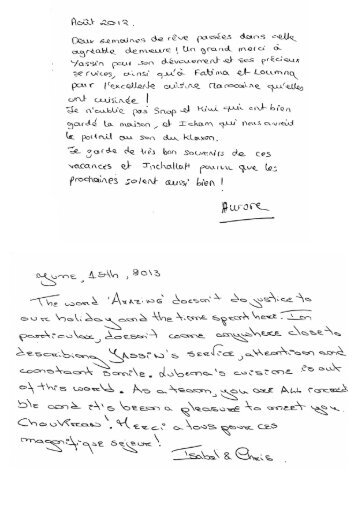 Août 2012.
Deux semaines de rêve passées dans cette
agréable demeure ! Un grand merci à
Yassin pour son dévouement et ses précieux
services, ainsi qu'à Fatima et Loumna
pour l'excellente cuisine Marocaine qu'elles
ont cuisinée !
Je n'oublie pas Snup et Kiwi qui ont bien
gardé la maison, et Icham qui nous ouvrait
le portail au son du Klaxon.
Je garde de très bon souvenirs de ces
vacances et Inchallah pourvu que les
prochaines soient aussi bien !
Aurore
June, 15th, 2013
The word 'Amazing' doesn't do justice to
our holiday and the time spent here. In
particular, doesn't come anywhere close to
describing Yassin's service, attention and
constant smile. Lubnna's cuisine is out
of this world. As a team, you are ALL incredi
ble and it's been a pleasure to meet you
Choukran! Merci a tous pour ces
magnifique sejour!
Isabel & Chris.